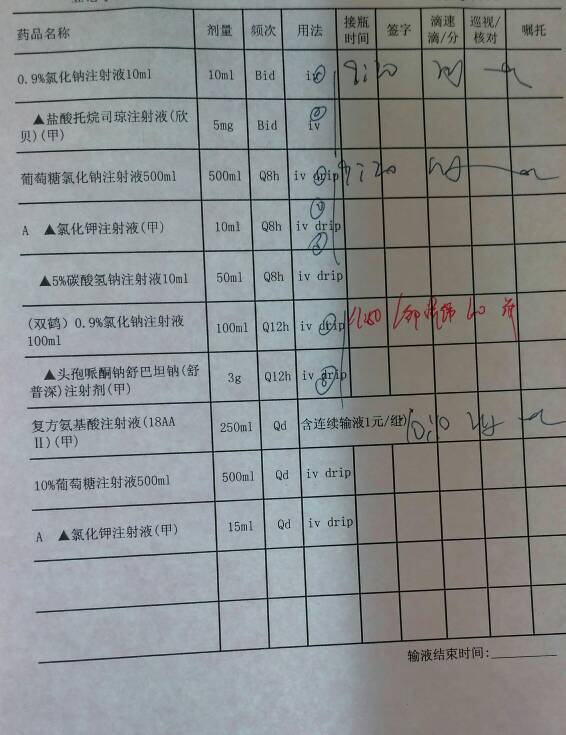 药品名称 剂量 频次 用法 接瓶时间 签字 滴速滴/分 巡视/核对 嘱托
0.9%氯化钠注射液10ml 10ml Bid iv
▲盐酸托烷司琼注射液(欣
贝)(甲) 5mg Bid iv
葡萄糖氯化钠注射液500ml 500ml Q8h iv drip
A ▲氯化钾注射液(甲) 10ml Q8h iv drip
▲5%碳酸氢钠注射液10ml 50ml Q8h iv drip
(双鹤) 0.9%氯化钠注射液
100ml 100ml Q12h iv drip
▲头孢哌酮钠舒巴坦钠(舒
普深)注射剂(甲) 3g Q12h iv drip
复方氨基酸注射液(18AA
II)(甲) 250ml Qd 含连续输液1元/组) 10:10
10%葡萄糖注射液500ml 500ml Qd iv drip
A ▲氯化钾注射液(甲) 15ml Qd iv drip
输液结束时间: